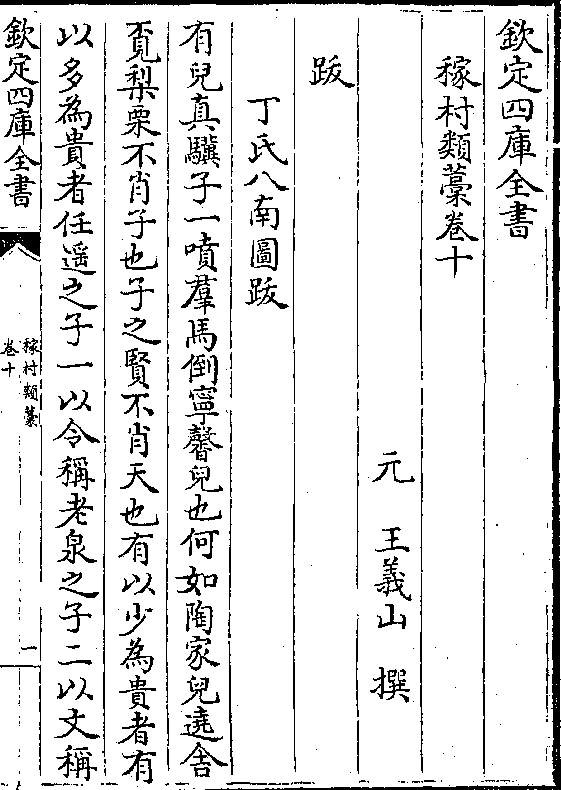 欽定四庫全書
稼村類藁卷十
元　王義山　撰
跋
丁氏八南圖跋
有兒真驥子一噴羣馬倒寧馨兒也何如陶家兒遶舍
覔梨栗不肖子也子之賢不肖天也有以少為貴者有
以多為貴者任遥之子一以令稱老泉之子二以文稱
欽定四庫全書
稼村類藁
卷十
一